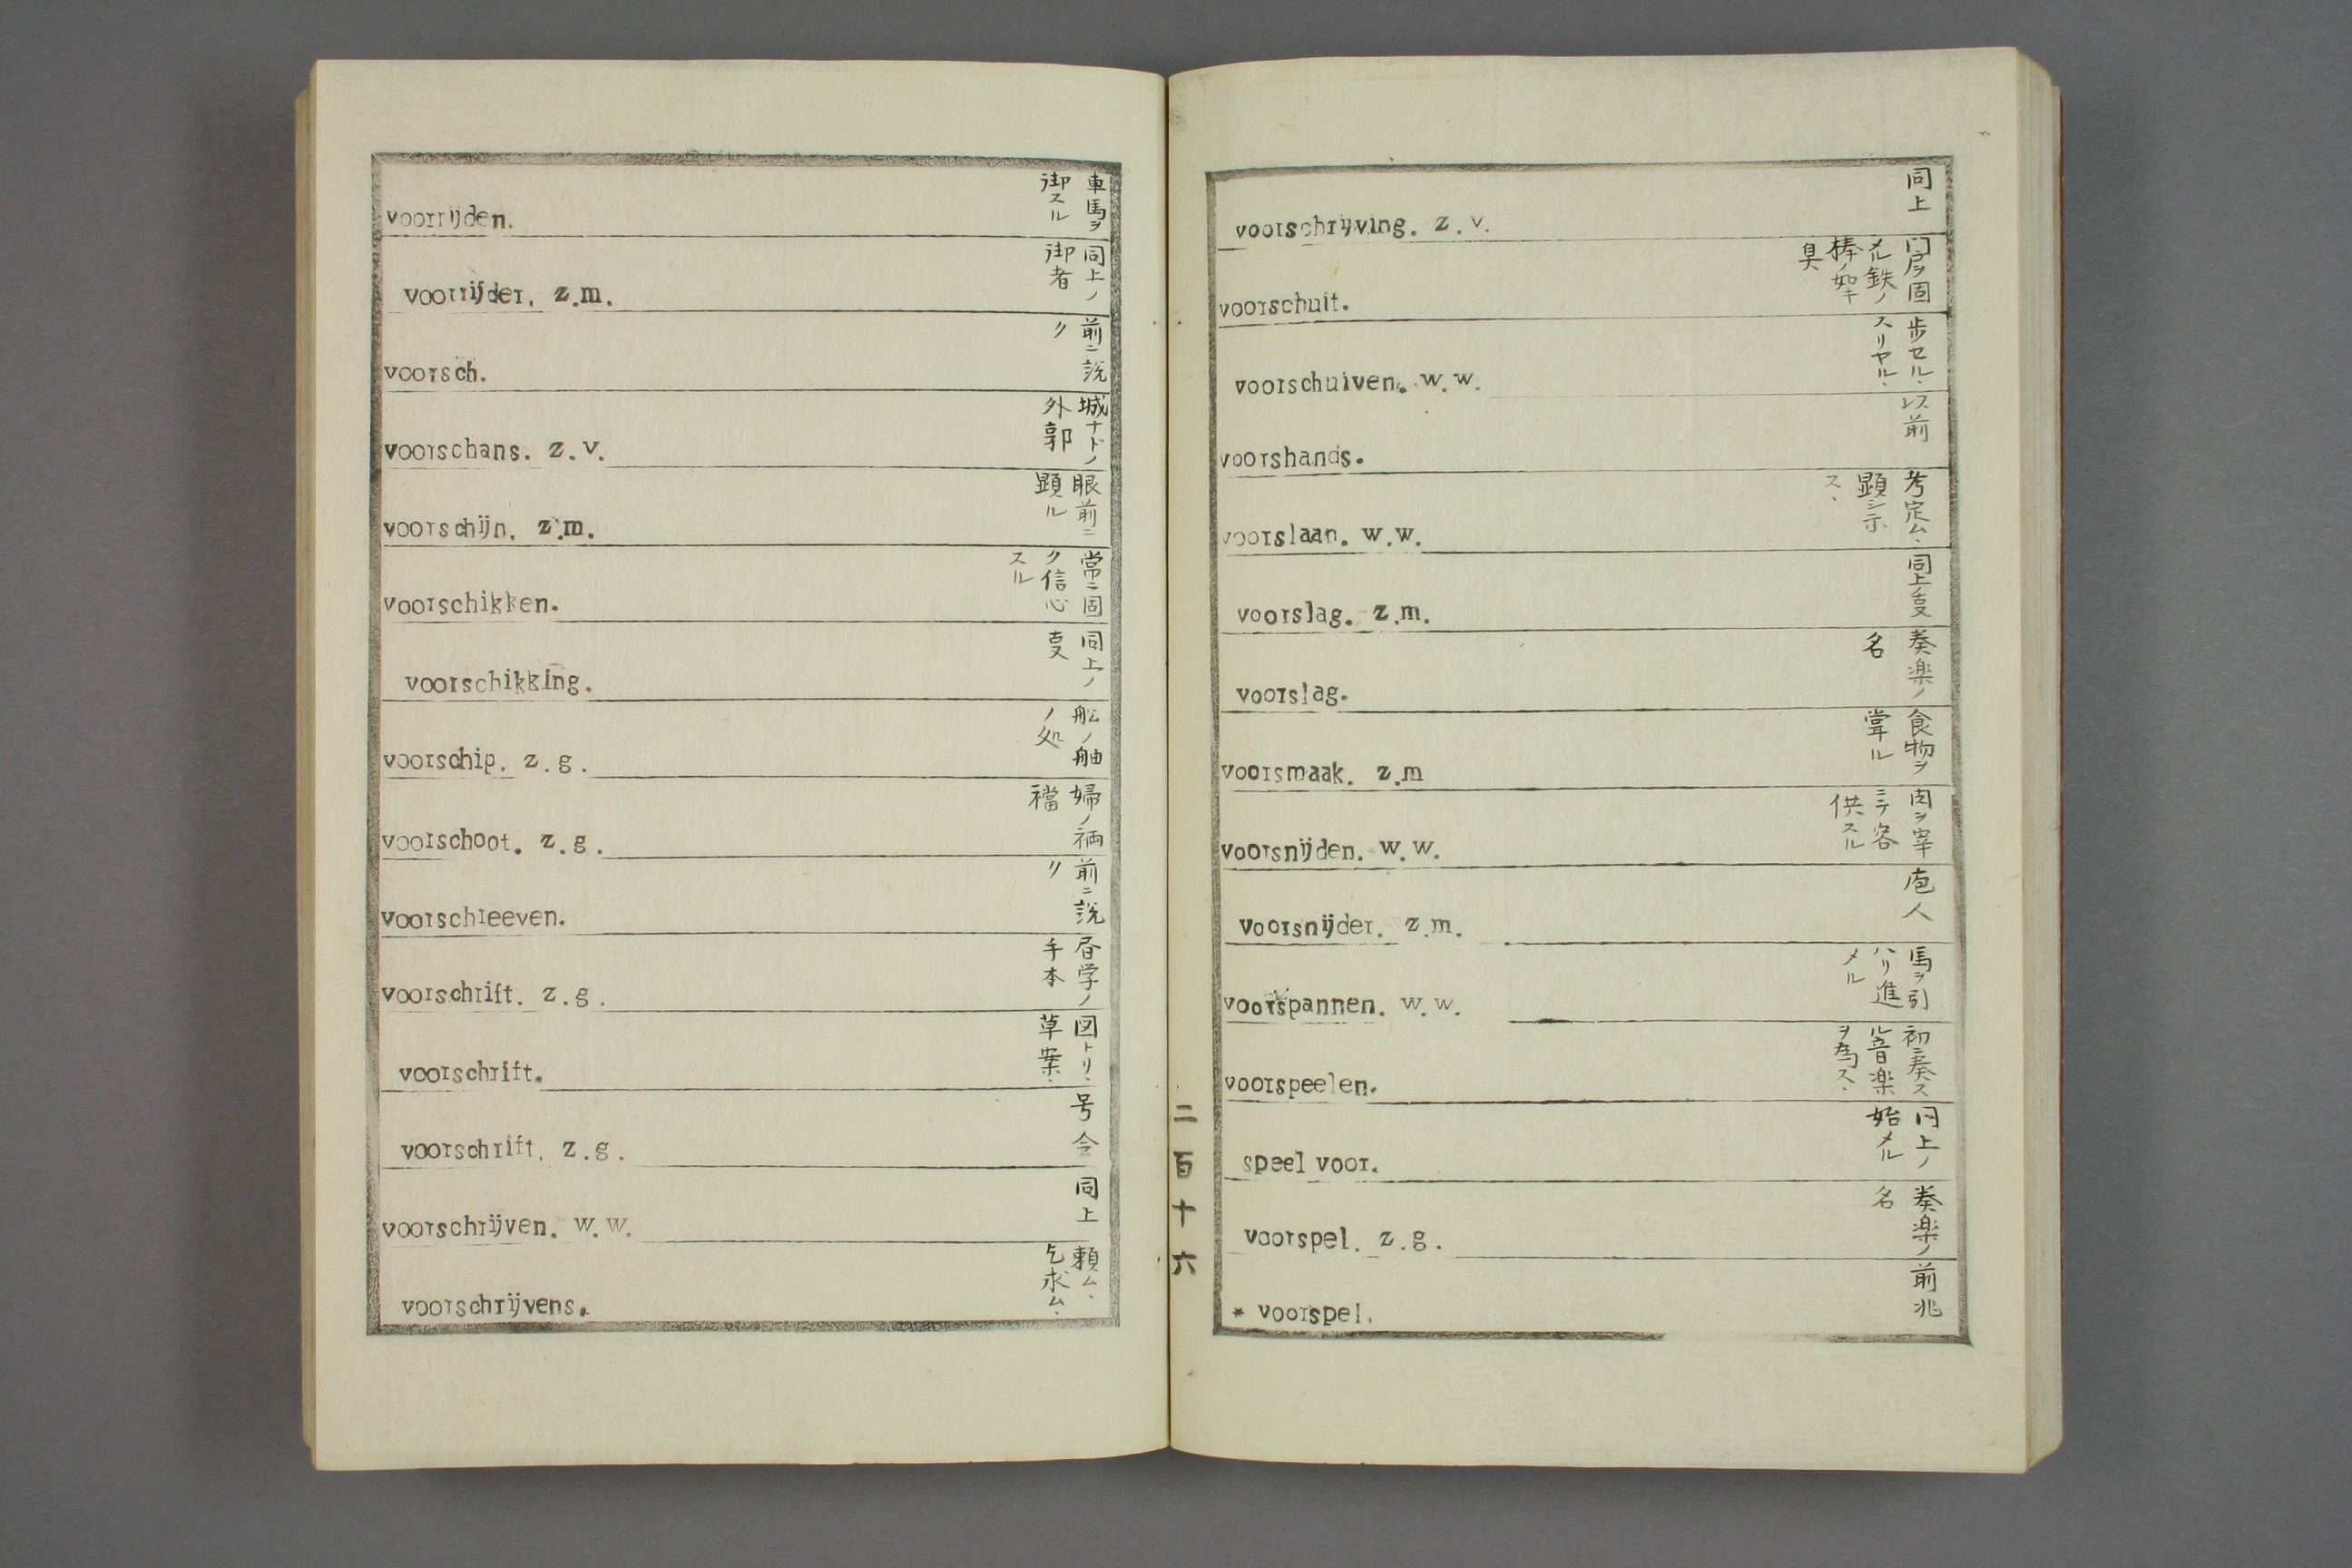 voorrijden.
車馬ヲ
御スル
voorrijder. z.m.
同上ノ
御者
voorsch.
前ニ説
ク
voorschans. z.v.
城ナドノ
外郭
voorschijn. z.m.
眼前ニ
顕ル
voorschikken.
常ニ固
ク信心
スル
voorschikking.
同上ノ
voorschip. z.g.
舩ノ舳
ノ処
voorschoot. z.g.
婦ノ裲
襠
voorschreeven.
前ニ説
ク
voorschrift. z.g.
学ノ
手本
voorschrift.
図トリ、
草案、
voorschrift. z.g.
号令
voorschrijven. w.w.
同上
voorschrijvens.
頼ム、
乞求ム、
二百十六
voorschrijving. z.v.
同上
voorschuit.
門戸ヲ固
メル鉄ノ
棒ノ如キ
具
voorschuiven. w.w.
歩セル、
スリヤル、
voorshands.
以前
voorslaan. w.w.
考定ム、
顕シ示
ス、
voorslag. z.m.
同上ノ
voorslag.
奏楽ノ
名
voorsmaak. z.m
食物ヲ
甞ル
voorsnijden. w.w.
肉ヲ宰
シテ客
供スル
voorsnijder. z.m.
庖人
voorspannen. w.w.
馬ヲ引
ハリ進
メル
voorspeelen.
初ニ奏ス
ル音楽
ヲ為ス、
speel voor.
同上ノ
始メル
voorspel. z.g.
奏楽ノ
名
* voorspel.
前兆